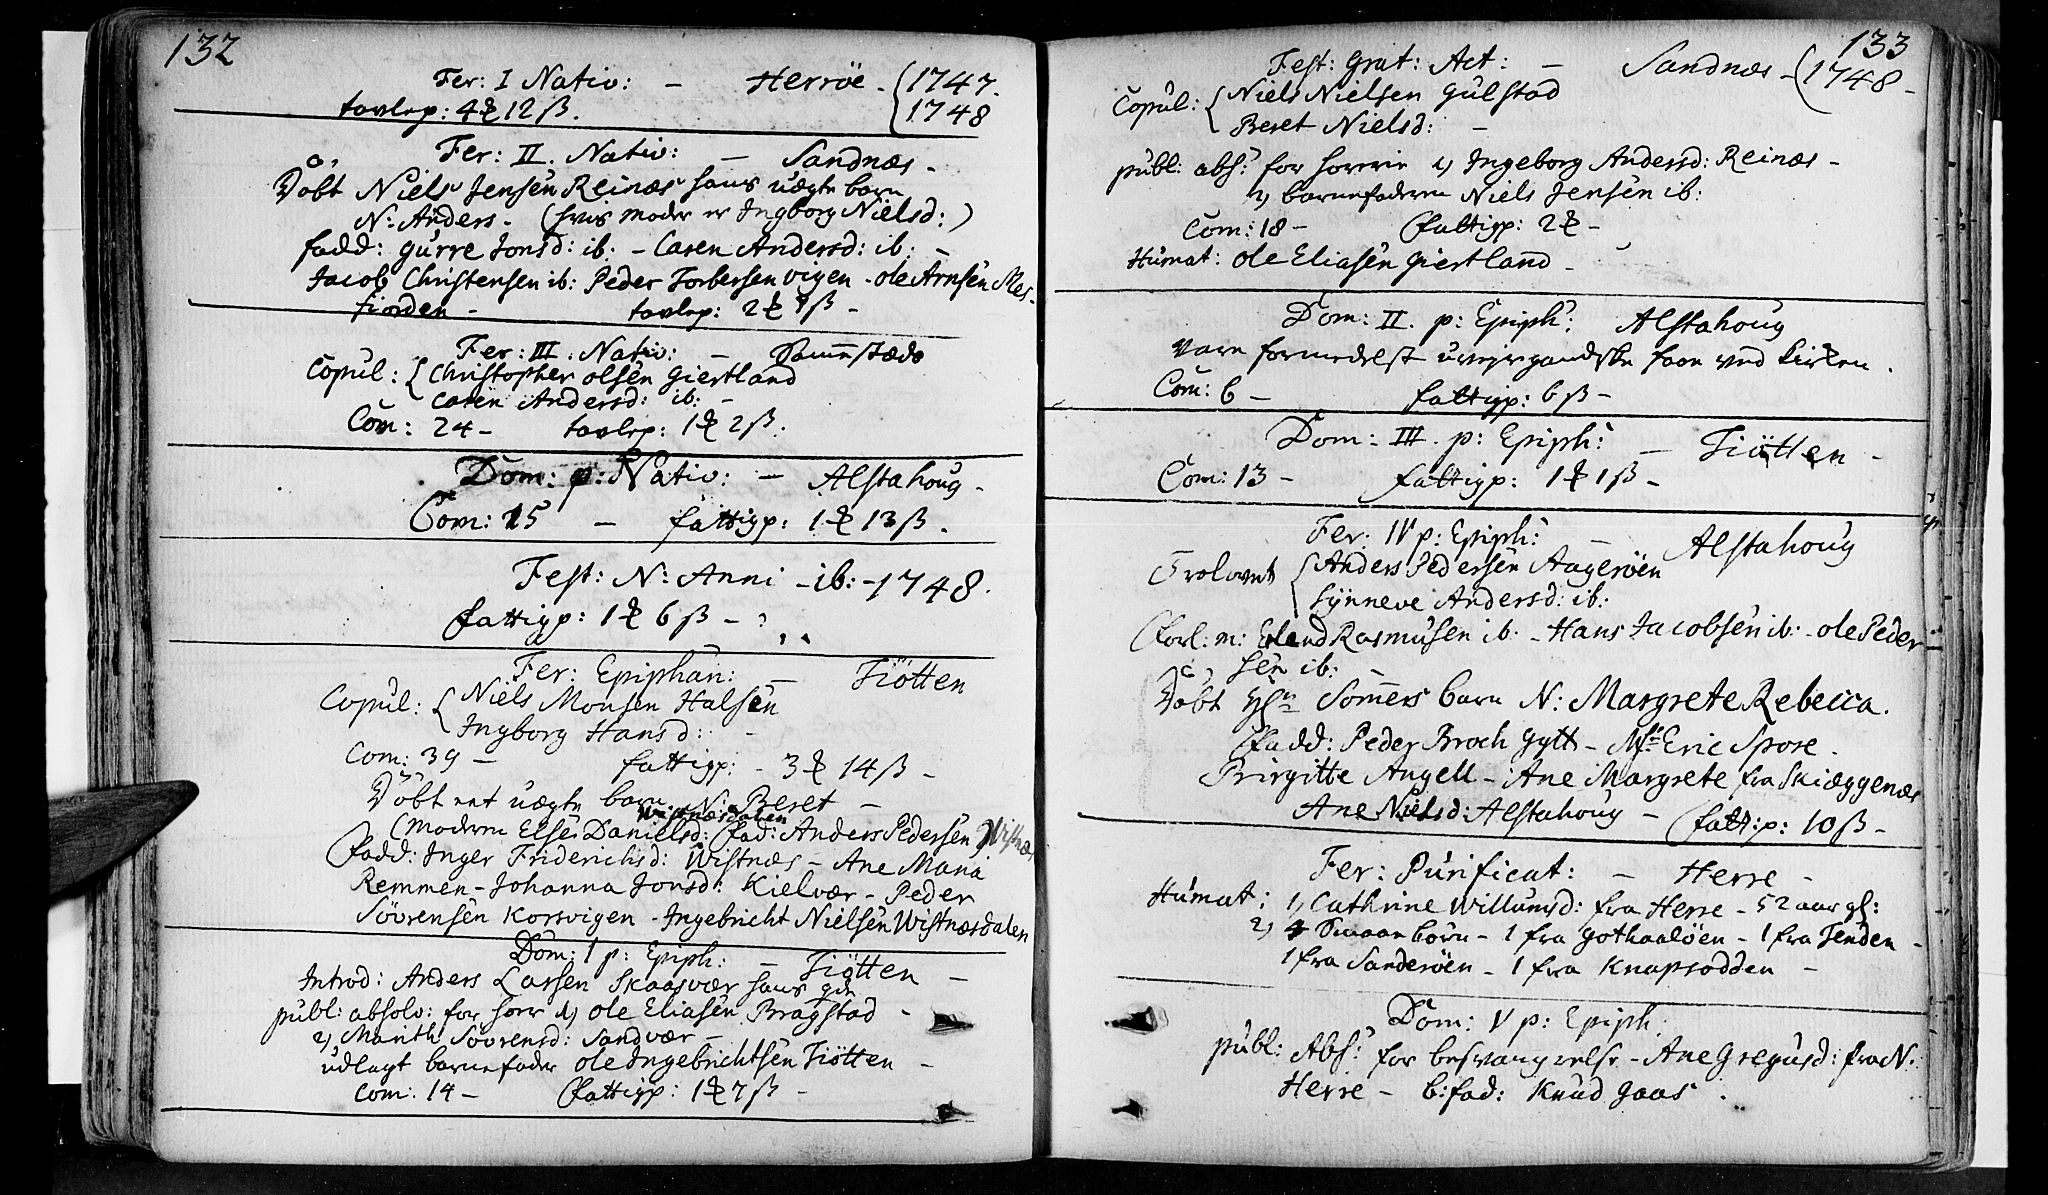 132
Fer: I Nativ: — Herröe - { 1747.
tavlep: 4 12 ß. 1748
Fer: II. Nativ: — Sandnæs -
Döbt Niels Jensen Reinæs hans uægte barn
N: Anders - (hvis moder er Ingborg Nielsd:)
fadd: Gurre Jonsd: ib: - Caren Andersd: ib: -
Jacob Christensen ib: Peder Torbersen Vigen - Ole Arnsen Mes-
fiorden - tavlep: 2 8 ß -
Fer: III. Nativ: — Sammestæds
Copul: { Christopher Olsen Giertland
Caren Andersd: ib: -
Com: 24 - tavlep: 1 2 ß.
Dom: p: Nativ: — Alstahoug -
Com: 15 — fattigp: 1 13 ß.
Fest: N: Anni - ib: - 1748.
fattigp: 1 6 ß -
Fer: Epiphan: — Tiötten
Copul: { Niels Monsen Halsen
Ingborg Hansd: -
Com: 39 — fattigp: - 3 14 ß -
Döbt eet uægte barn N: Beret —
Wistnæsdalen
(moderen Else Danielsd: fad: Anders Pedersen Wistnæs
fadd: Inger Friderichsd: Wistnæs - Ane Maria
Remmen - Johanna Jonsd: Kielvær - Peder
Sövrensen Korsvigen - Ingebricht Nielsen Wistnæsdalen
Dom: I p: Epiph: — Tiötten —
Introd: Anders Larsen Skaasvær hans
publ: absolv: for 1) Ole Eliasen Bragstad -
2) Marith Sövrensd: Sandvær —
udlagt barnefader Ole Ingebrichtsen Tiötten —
Com: 14 — fattigp: 1 7 ß -
133
Fest: Grat: Act: — Sandnæs - { 1748 -
Copul: { Niels Nielsen Gulstad
Beret Nielsd: -
publ: abs: for 1) Ingeborg Andersd: Reinæs -
2) barnefaderen Niels Jensen ib:
Com: 18 - fattigp: 2 -
Humat: Ole Eliasen Giertland -
Dom: II. p: Epiph: Alstahoug
vare formedelst gandske faae ved Kirken.
Com: 6 — fattigp: 6 ß -
Dom: III. p: Epiph: — Tiötten -
Com: 13 — fattigp: 1 1 ß -
Fer: IV p: Epiph: — Alstahoug
Trolovet { Anders Pedersen Aageröen
Synneve Andersd: ib:
forl: m: Erlend Rasmusen ib. - Hans Jacobsen ib: - Ole Peder-
sen ib:
Döbt Sommers barn N: Margrete Rebecca.
fadd: Peder Broch Gytt - Eric Spore.
Birgitte Angell - Ane Margrete fra Skiæggenæs
Ane Nielsd: Alstahoug — fatt:p: 10 ß -
Fer: Purificat: — Herre -
Humat: 1) Cathrine Willumsd: fra Herre - 52 aar gl:
2) 4 Smaae börn - 1 fra Gothaalöen - 1 fra Tenden -
1 fra Sanderöen - 1 fra Knapsodden -
Dom: V p: Epiph:
publ: Abs: for besvangrelse - Ane Gregusd: fra N:
Herre — b: fad: Knud Gaas.